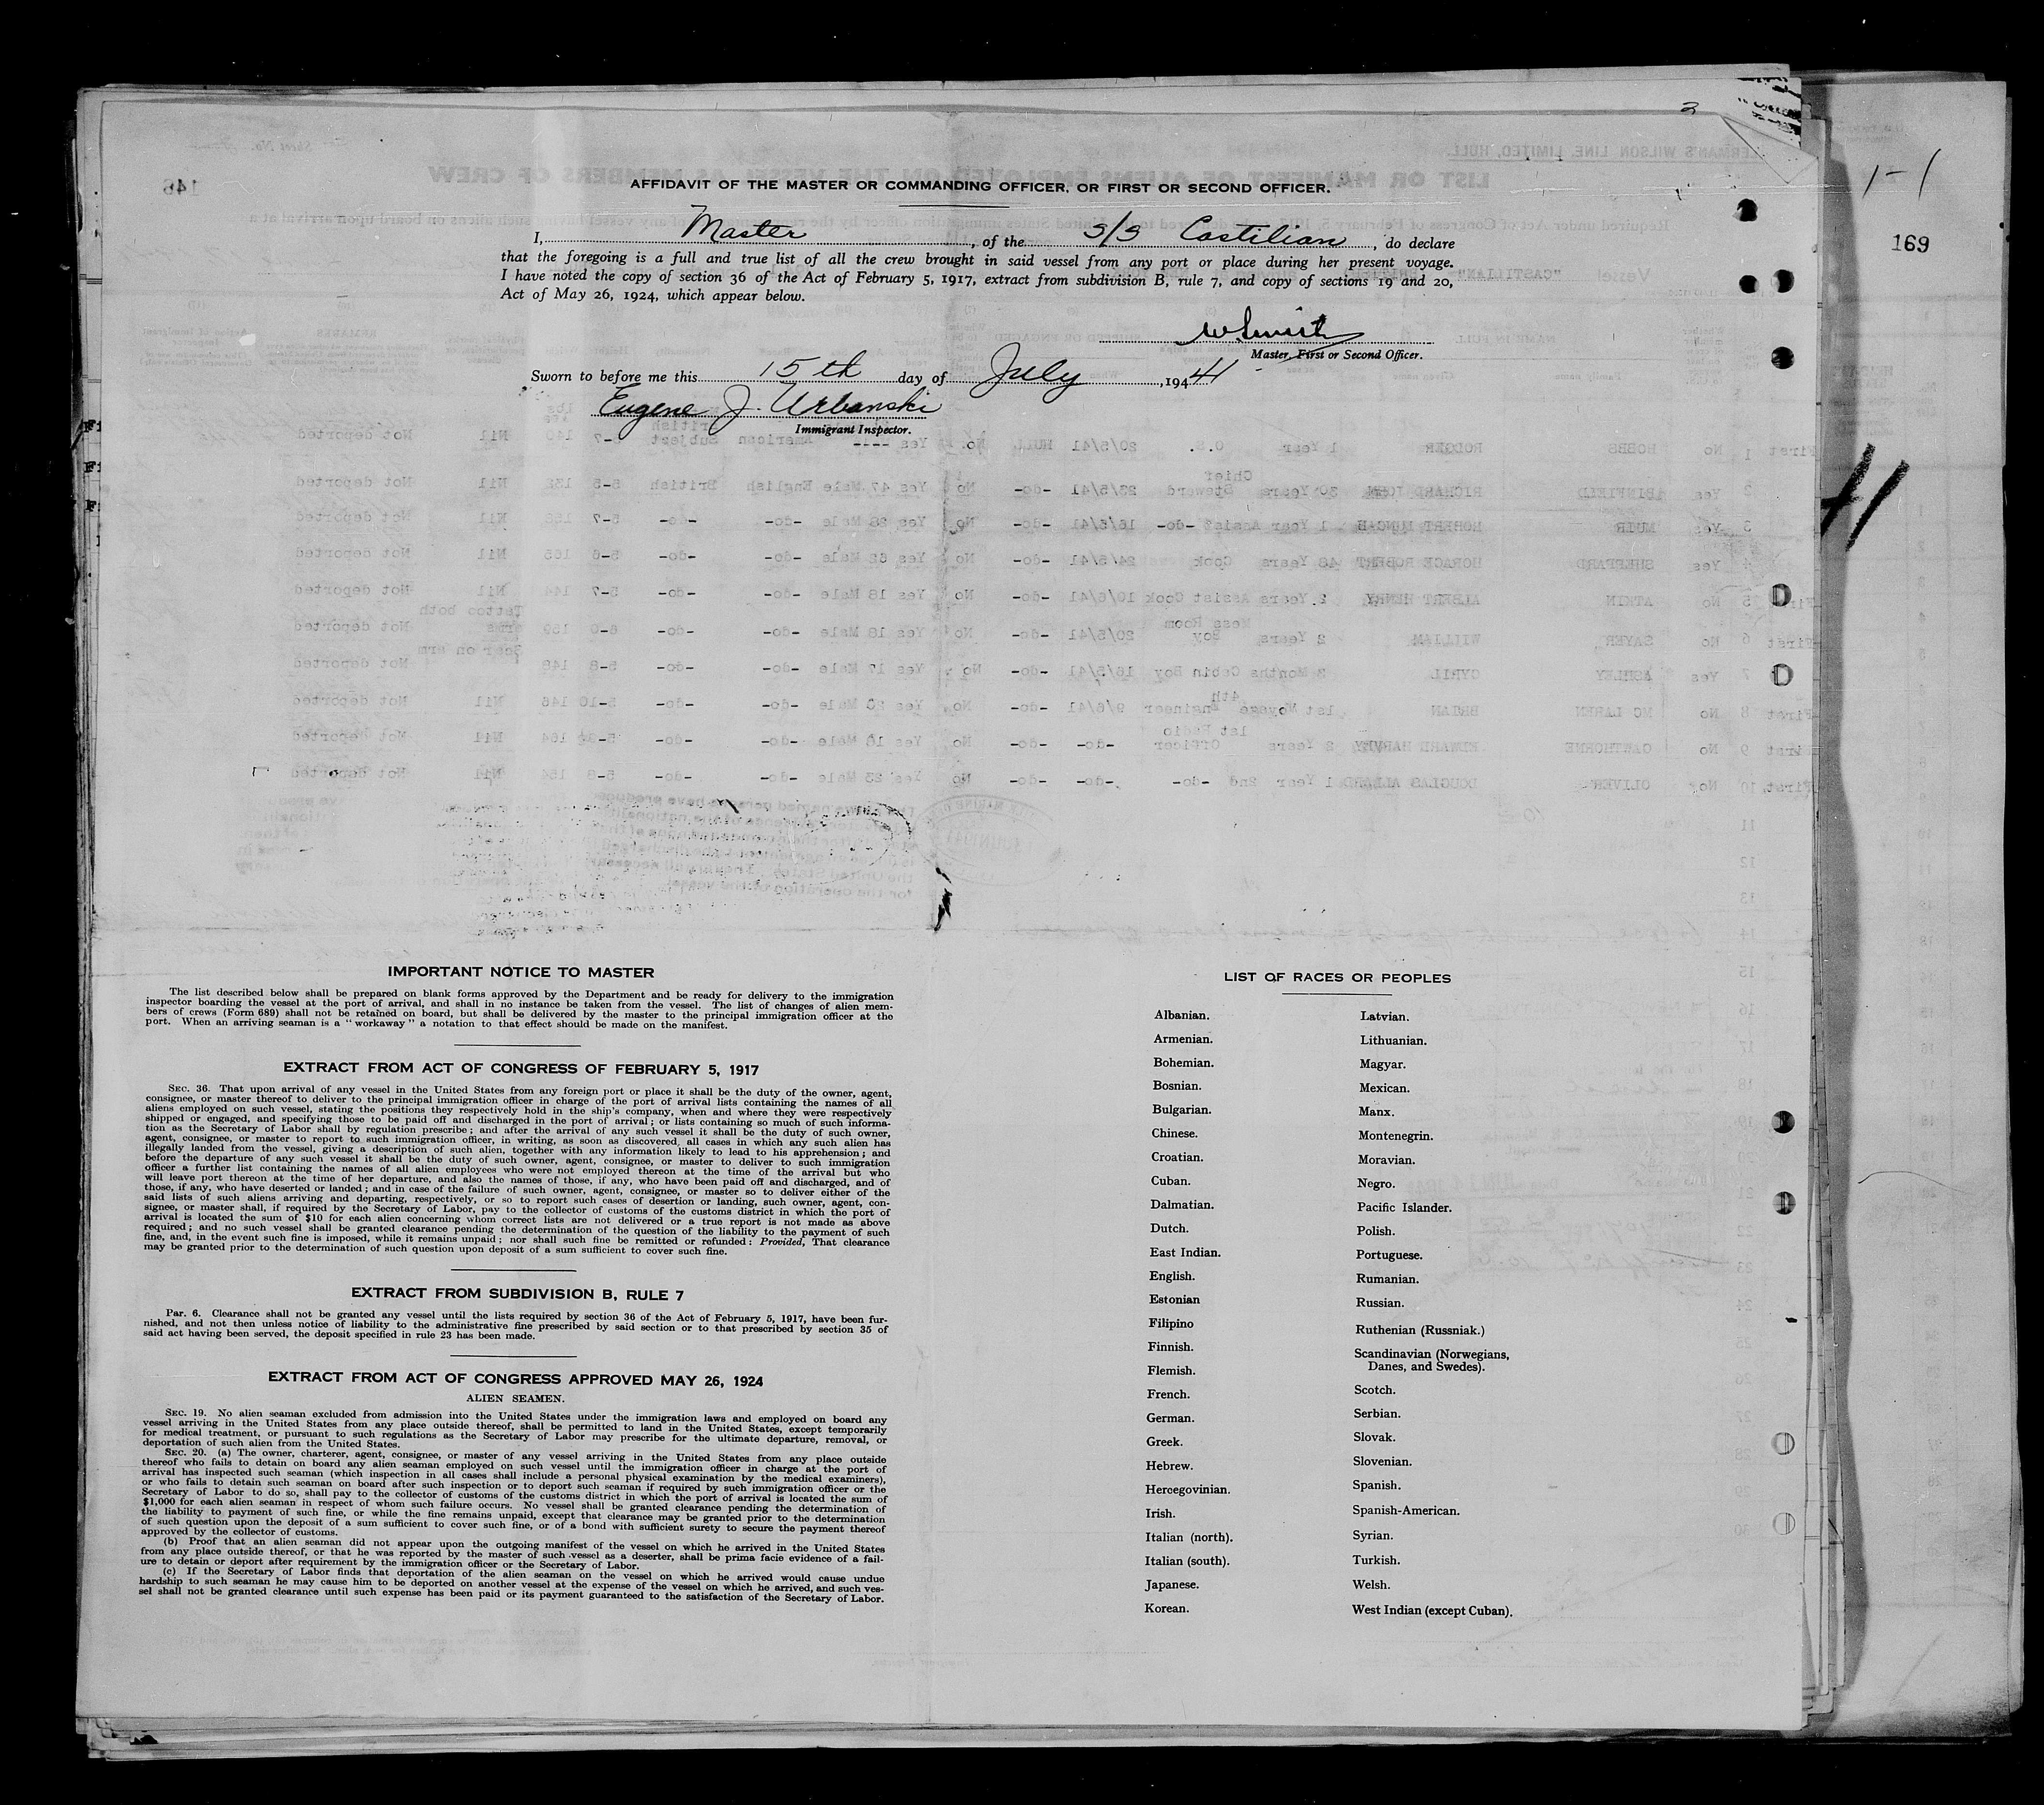 3
AFFIDAVIT OF THE MASTER OR COMMANDING OFFICER, OR FIRST OR SECOND OFFICER.
I, Master, of the S/S Castilian, do declare
that the foregoing is a full and true list of all the crew brought in said vessel from any port or place during her present voyage.
I have noted the copy of section 36 of the Act of February 5, 1917, extract from subdivision B, rule 7, and copy of sections 19 and 20,
Act of May 26, 1924, which appear below.
Master, First or Second Officer.
Sworn to before me this 15th day of July, 1941
Eugene J. Urbanski
Immigrant Inspector.
1-1
169
41
IMPORTANT NOTICE TO MASTER
The list described below shall be prepared on blank forms approved by the Department and be ready for delivery to the immigration
inspector boarding the vessel at the port of arrival, and shall in no instance be taken from the vessel. The list of changes of alien mem-
bers of crews (Form 689) shall not be retained on board, but shall be delivered by the master to the principal immigration officer at the
port. When an arriving seaman is a "workaway" a notation to that effect should be made on the manifest.
EXTRACT FROM ACT OF CONGRESS OF FEBRUARY 5, 1917
SEC. 36. That upon arrival of any vessel in the United States from any foreign port or place it shall be the duty of the owner, agent,
consignee, or master thereof to deliver to the principal immigration officer in charge of the port of arrival lists containing the names of all
aliens employed on such vessel, stating the positions they respectively hold in the ship's company, when and where they were respectively
shipped or engaged, and specifying those to be paid off and discharged in the port of arrival; or lists containing so much of such informa-
tion as the Secretary of Labor shall by regulation prescribe; and after the arrival of any such vessel it shall be the duty of such owner,
agent, consignee, or master to report to such immigration officer, in writing, as soon as discovered, all cases in which any such alien has
illegally landed from the vessel, giving a description of such alien, together with any information likely to lead to his apprehension; and
before the departure of any such vessel it shall be the duty of such owner, agent, consignee, or master to deliver to such immigration
officer a further list containing the names of all alien employees who were not employed thereon at the time of the arrival but who
will leave port thereon at the time of her departure, and also the names of those, if any, who have been paid off and discharged, and of
those, if any, who have deserted or landed; and in case of the failure of such owner, agent, consignee, or master so to deliver either of the
said lists of such aliens arriving and departing, respectively, or so to report such cases of desertion or landing, such owner, agent, con-
signee, or master shall, if required by the Secretary of Labor, pay to the collector of customs of the customs district in which the port of
arrival is located the sum of $10 for each alien concerning whom correct lists are not delivered or a true report is not made as above
required; and no such vessel shall be granted clearance pending the determination of the question of the liability to the payment of such
fine, and, in the event such fine is imposed, while it remains unpaid; nor shall such fine be remitted or refunded: Provided, That clearance
may be granted prior to the determination of such question upon deposit of a sum sufficient to cover such fine.
EXTRACT FROM SUBDIVISION B, RULE 7
Par. 6. Clearance shall not be granted any vessel until the lists required by section 36 of the Act of February 5, 1917, have been fur-
nished, and not then unless notice of liability to the administrative fine prescribed by said section or to that prescribed by section 35 of
said act having been served, the deposit specified in rule 23 has been made.
EXTRACT FROM ACT OF CONGRESS APPROVED MAY 26, 1924
ALIEN SEAMEN.
SEC. 19. No alien seaman excluded from admission into the United States under the immigration laws and employed on board any
vessel arriving in the United States from any place outside thereof, shall be permitted to land in the United States, except temporarily
for medical treatment, or pursuant to such regulations as the Secretary of Labor may prescribe for the ultimate departure, removal, or
deportation of such alien from the United States.
SEC. 20. (a) The owner, charterer, agent, consignee, or master of any vessel arriving in the United States from any place outside
thereof who fails to detain on board any alien seaman employed on such vessel until the immigration officer in charge at the port of
arrival has inspected such seaman (which inspection in all cases shall include a personal physical examination by the medical examiners),
or who fails to detain such seaman on board after such inspection or to deport such seaman if required by such immigration officer or the
Secretary of Labor to do so, shall pay to the collector of customs of the customs district in which the port of arrival is located the sum of
$1,000 for each alien seaman in respect of whom such failure occurs. No vessel shall be granted clearance pending the determination of
the liability to payment of such fine, or while the fine remains unpaid, except that clearance may be granted prior to the determination
of such question upon the deposit of a sum sufficient to cover such fine, or of a bond with sufficient surety to secure the payment thereof
approved by the collector of customs.
(b) Proof that an alien seaman did not appear upon the outgoing manifest of the vessel on which he arrived in the United States
from any place outside thereof, or that he was reported by the master of such vessel as a deserter, shall be prima facie evidence of a fail-
ure to detain or deport after requirement by the immigration officer or the Secretary of Labor.
(c) If the Secretary of Labor finds that deportation of the alien seaman on the vessel on which he arrived would cause undue
hardship to such seaman he may cause him to be deported on another vessel at the expense of the vessel on which he arrived, and such ves-
sel shall not be granted clearance until such expense has been paid or its payment guaranteed to the satisfaction of the Secretary of Labor.
LIST OF RACES OR PEOPLES
Albanian.
Armenian.
Bohemian.
Bosnian.
Bulgarian.
Chinese.
Croatian.
Cuban.
Dalmatian.
Dutch.
East Indian.
English.
Estonian
Filipino
Finnish.
Flemish.
French.
German.
Greek.
Hebrew.
Hercegovinian.
Irish.
Italian (north).
Italian (south).
Japanese.
Korean.
Latvian.
Lithuanian.
Magyar.
Mexican.
Manx.
Montenegrin.
Moravian.
Negro.
Pacific Islander.
Polish.
Portuguese.
Rumanian.
Russian.
Ruthenian (Russniak.)
Scandinavian (Norwegians,
Danes, and Swedes).
Scotch.
Serbian.
Slovak.
Slovenian.
Spanish.
Spanish-American.
Syrian.
Turkish.
Welsh.
West Indian (except Cuban).